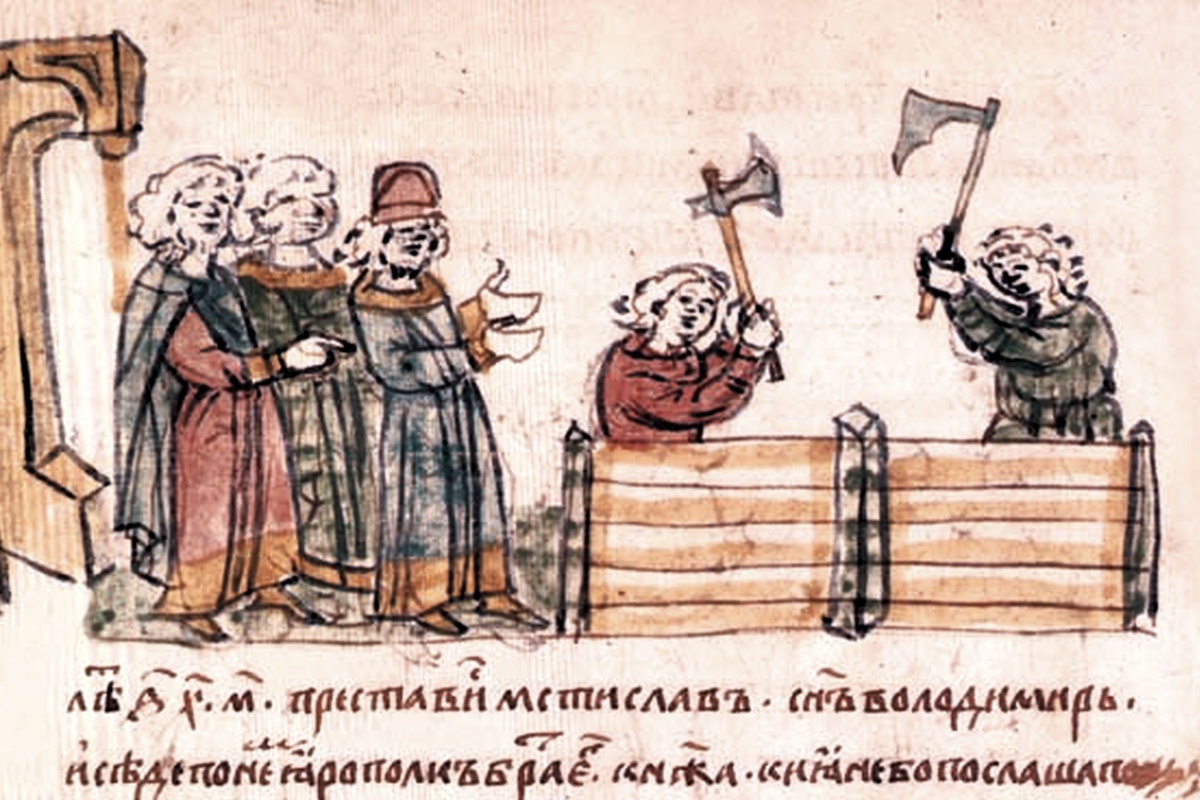 лѣ҃ ѕ҃ х҃. м҃. престави мстиславъ. сн҃ъ володимирь.
и сѣде по не ꙗрополкъ бра е҃. кнѧжа. киꙗне бо послаша